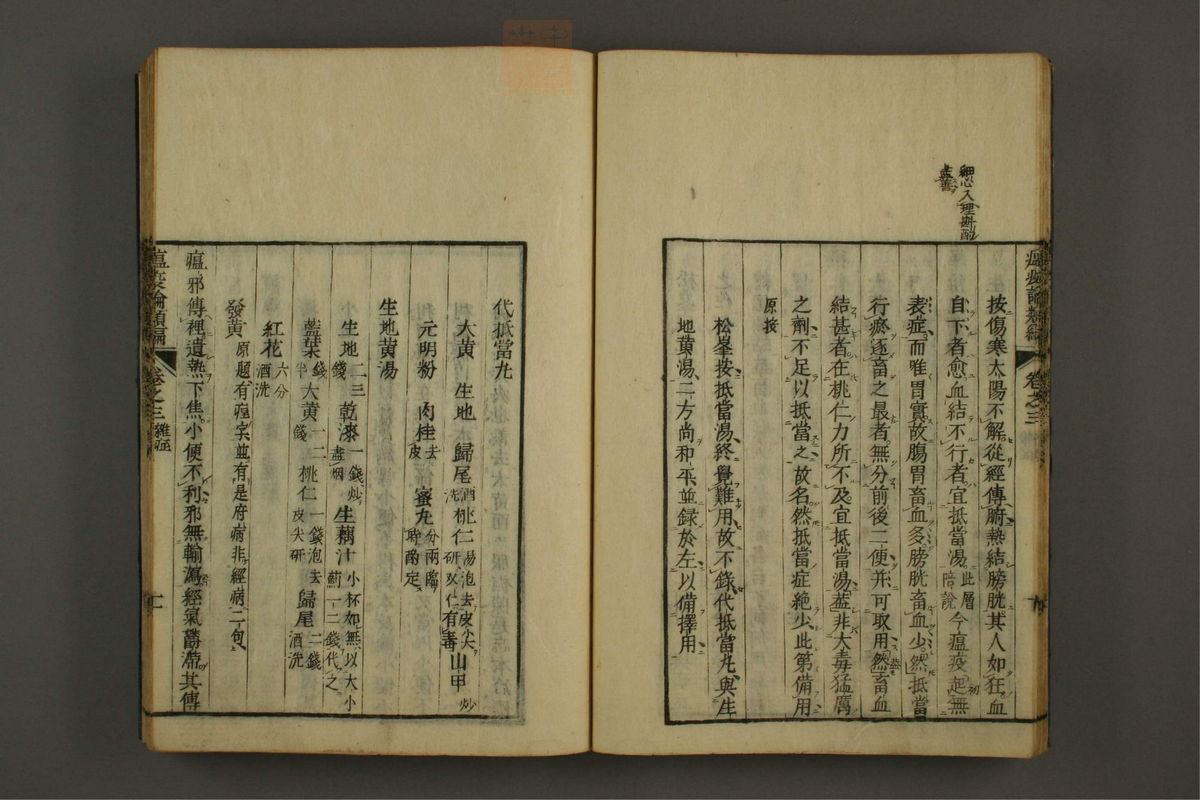 細心入理斟酌
盡善
瘟疫論類編
卷之三
按傷寒太陽不解從經傳腑熱結膀胱其人如狂血
自下者愈血結不行者宜抵當湯此層陪說今瘟疫起初無
表症而唯胃實故腸胃畜血多膀胱畜血少然抵當
行瘀逐畜之最者無分前後二便并可取用然畜血
結甚者在桃仁力所不及宜抵當湯蓋非大毒猛厲
之劑不足以抵當之故名然抵當症絶少此第備用
原按
松峯按抵當湯終覺難用故不錄代抵當丸與生
地黃湯二方尚和平並録於左以備擇用
代抵當丸
大黃 生地 歸尾酒洗 桃仁湯泡去皮尖研双仁有毒 山甲炒
元明粉 肉桂去皮 蜜丸分兩臨時酌定
生地黃湯
生地二三錢 乾漆一錢炒盡烟 生藕汁小杯如無以大小薊一二錢代之
藍葉錢半 大黃一二錢 桃仁一錢泡去皮尖研 歸尾二錢酒洗
紅花六分酒洗
發黃原題有疸字並有是府病非經病二句
瘟邪傳裡遺熱下焦小便不利邪無輸瀉經氣鬱滯其傳
瘟疫論類編
卷之三 雜症